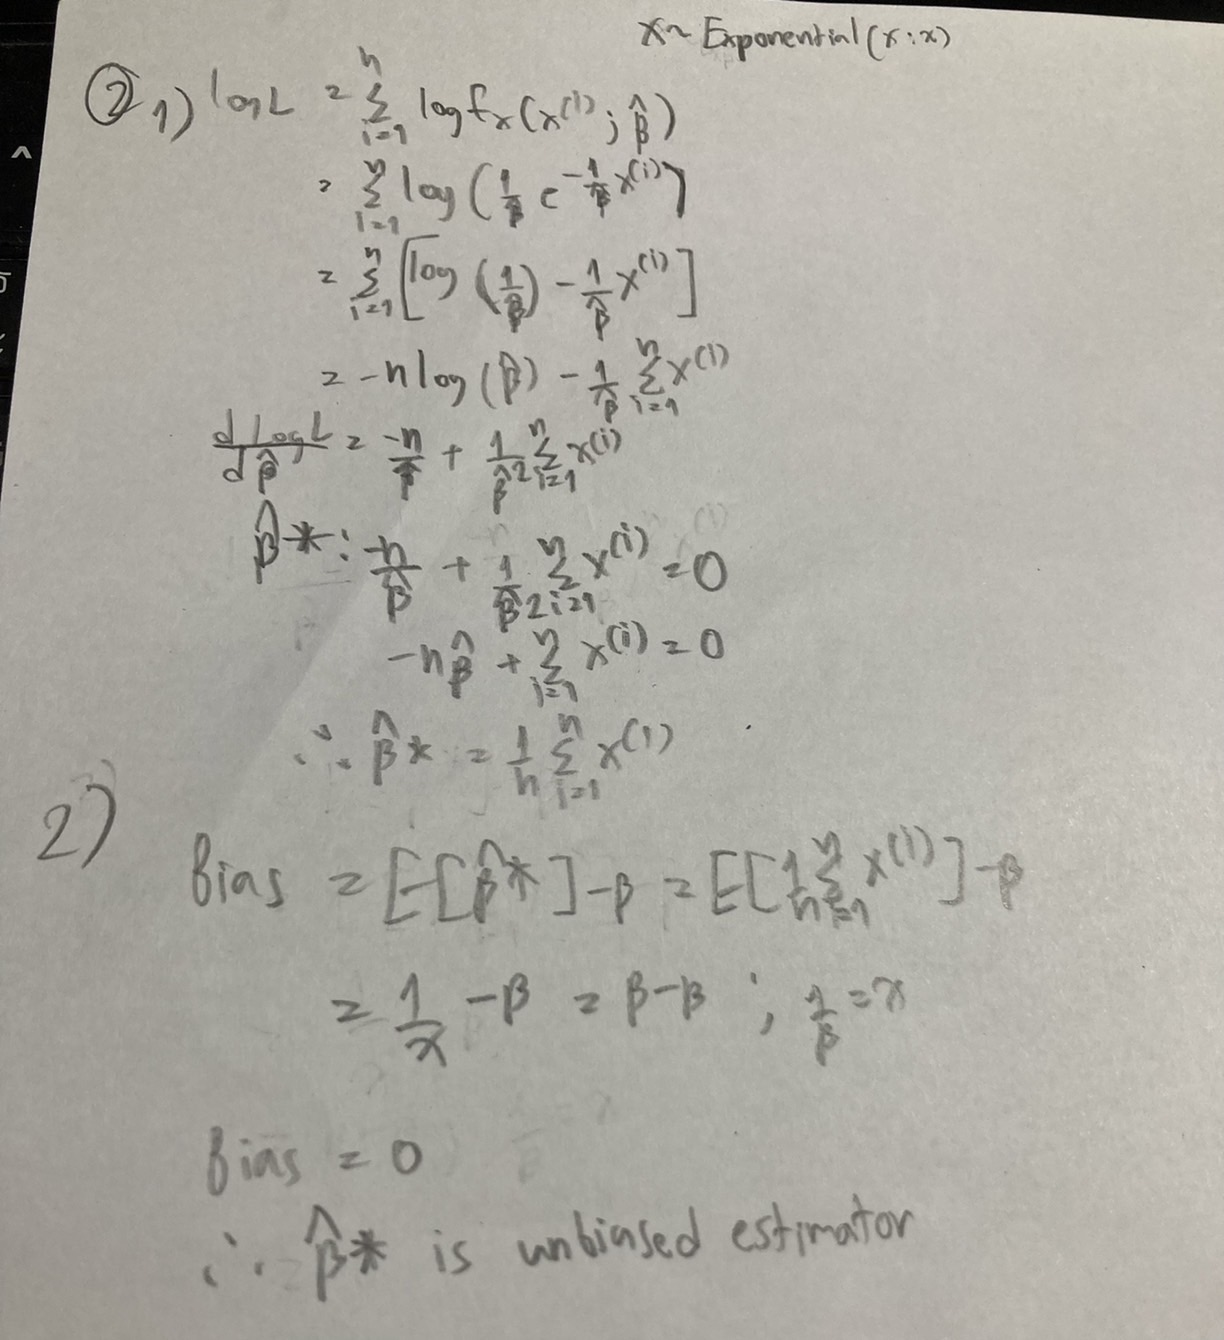 x ~ Exponential(x:x)
② 1) log L = Σ_{i=1}^{n} log f_x(x^(i); β̂)
= Σ_{i=1}^{n} log(1/β̂ e^{-1/β̂ x^(i)})
= Σ_{i=1}^{n} [log(1/β̂) - 1/β̂ x^(i)]
= -n log(β̂) - 1/β̂ Σ_{i=1}^{n} x^(i)
d log L / d β̂ = -n/β̂ + 1/β̂² Σ_{i=1}^{n} x^(i)
β̂*: -n/β̂ + 1/β̂² Σ_{i=1}^{n} x^(i) = 0
-nβ̂ + Σ_{i=1}^{n} x^(i) = 0
∴ β̂* = 1/n Σ_{i=1}^{n} x^(i)
2)
Bias = E[β̂*] - β = E[1/n Σ_{i=1}^{n} x^(i)] - β
= 1/λ - β = β - β ; 1/β = λ
Bias = 0
∴ β̂* is unbiased estimator